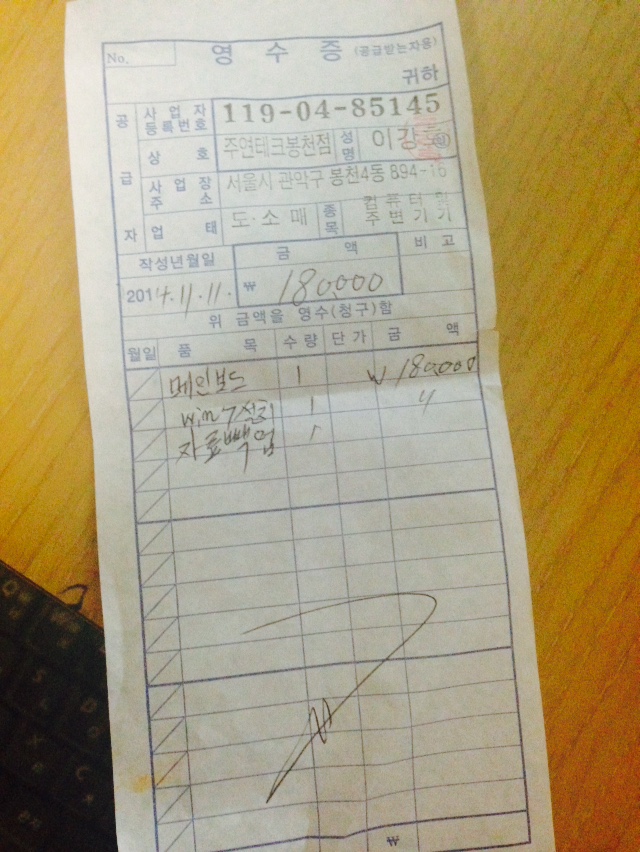 No. 영수증 (공급받는자용)
귀하
공급자 사업자등록번호 119-04-85145
상호 주연테크봉천점 성명 이강
사업장주소 서울시 관악구 봉천4동 894-16
업태 도·소매 종목 컴퓨터및주변기기
작성년월일 금액 비고
2014.11.11. ₩ 180,000
위 금액을 영수(청구)함
월일 품목 수량 단가 금액
메인보드 1 W 180,000
win7설치 1 〃
자료빽업 1
₩